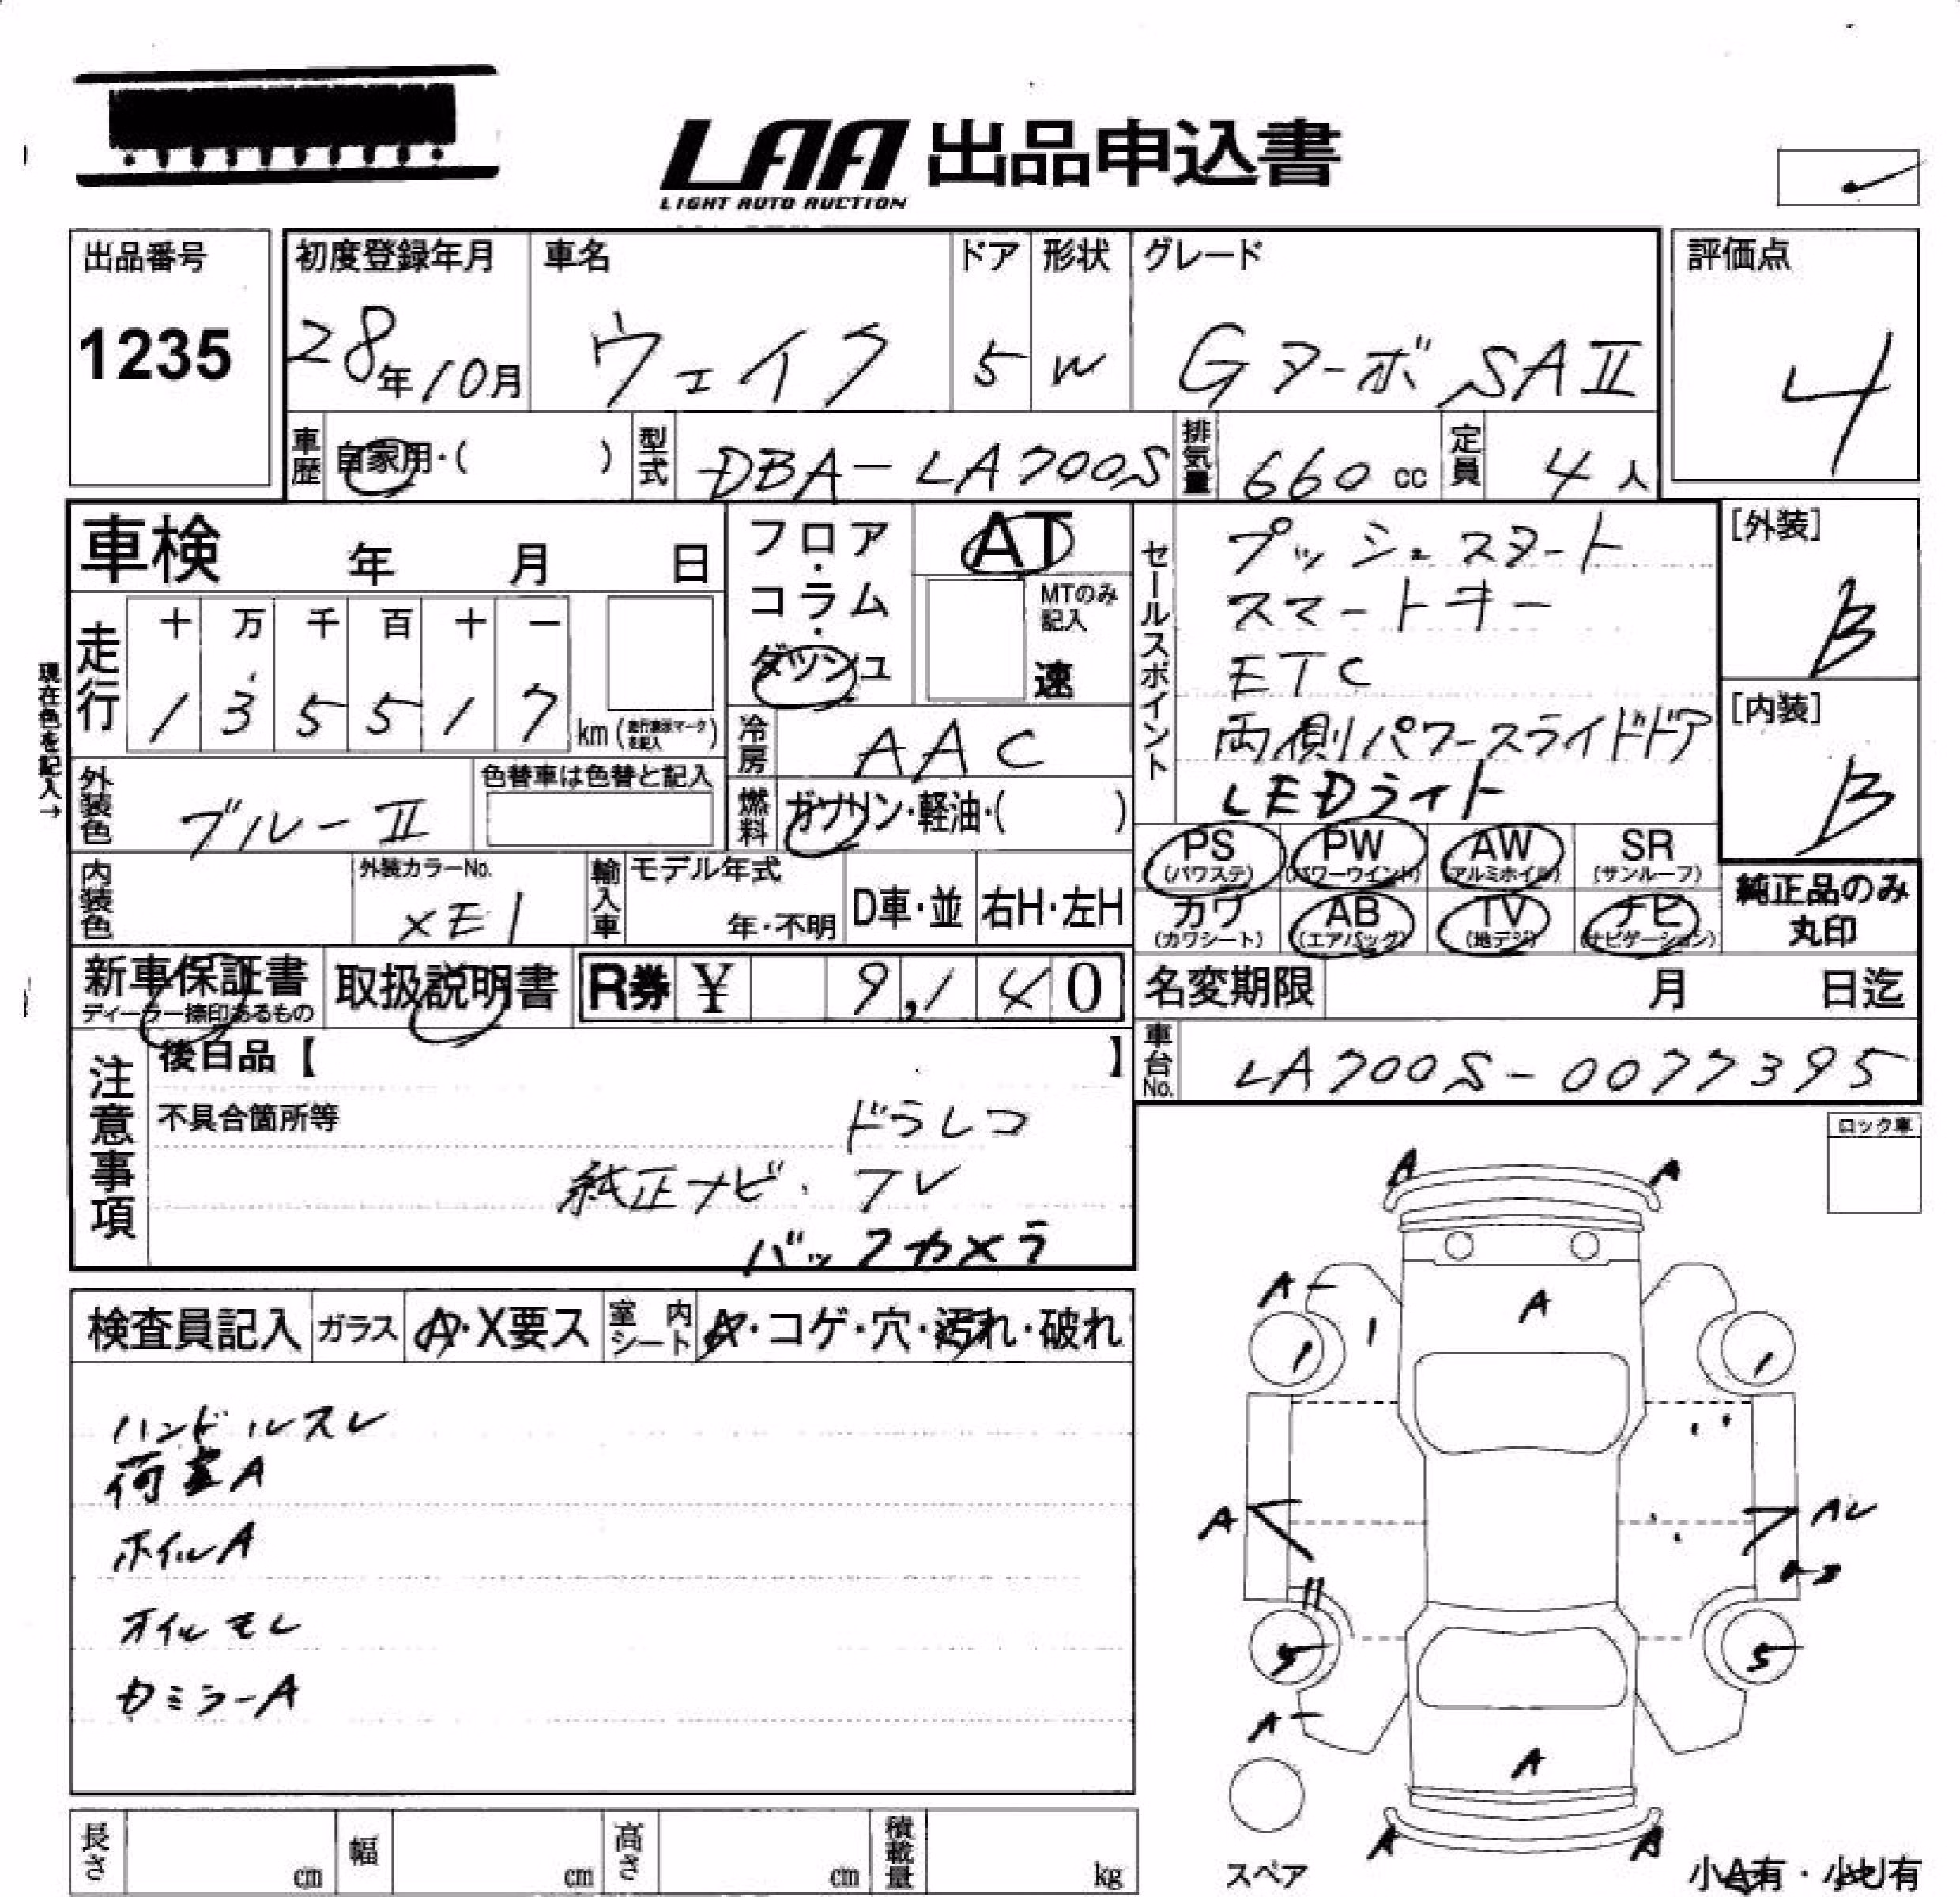 LAA 出品申込書
LIGHT AUTO AUCTION
出品番号
1235
初度登録年月
28年10月
車名
ウェイク
ドア
5
形状
W
グレード
Gターボ SAⅡ
評価点
4
車歴
自家用・( )
型式
DBA-LA700S
排気量
660 cc
定員
4人
車検 年 月 日
フロア・コラム・ダッシュ
AT
MTのみ記入
速
セールスポイント
プッシュスタート
スマートキー
ETC
両側パワースライドドア
LEDライト
[外装]
B
[内装]
B
現在色を記入→
走行
十 万 千 百 十 一
1 3 5 5 1 7 km (走行表示マークを記入)
冷房
AAC
外装色
ブルーⅡ
色替車は色替と記入
燃料
ガソリン・軽油・( )
PS (パワステ)
PW (パワーウインド)
AW (アルミホイル)
SR (サンルーフ)
カワ (カワシート)
AB (エアバッグ)
TV (地デジ)
ナビ (ナビゲーション)
純正品のみ丸印
内装色
外装カラーNo.
XE1
輸入車
モデル年式
年・不明
D車・並
右H・左H
新車保証書
ディーラー捺印あるもの
取扱説明書
R券 ¥ 9,140
名変期限 月 日迄
車台No.
LA700S-0077395
注意事項
後日品【 】
不具合箇所等
ドラレコ
純正ナビ、TV
バックカメラ
ロック車
検査員記入
ガラス
A・X要ス
室内シート
A・コゲ・穴・汚れ・破れ
ハンドルスレ
荷室A
ホイルA
オイルモレ
カミラーA
A A
A
A
1
1 1
A
A
5 5
A
A
A A
スペア
小A有・小U有
長さ cm
幅 cm
高さ cm
積載量 kg